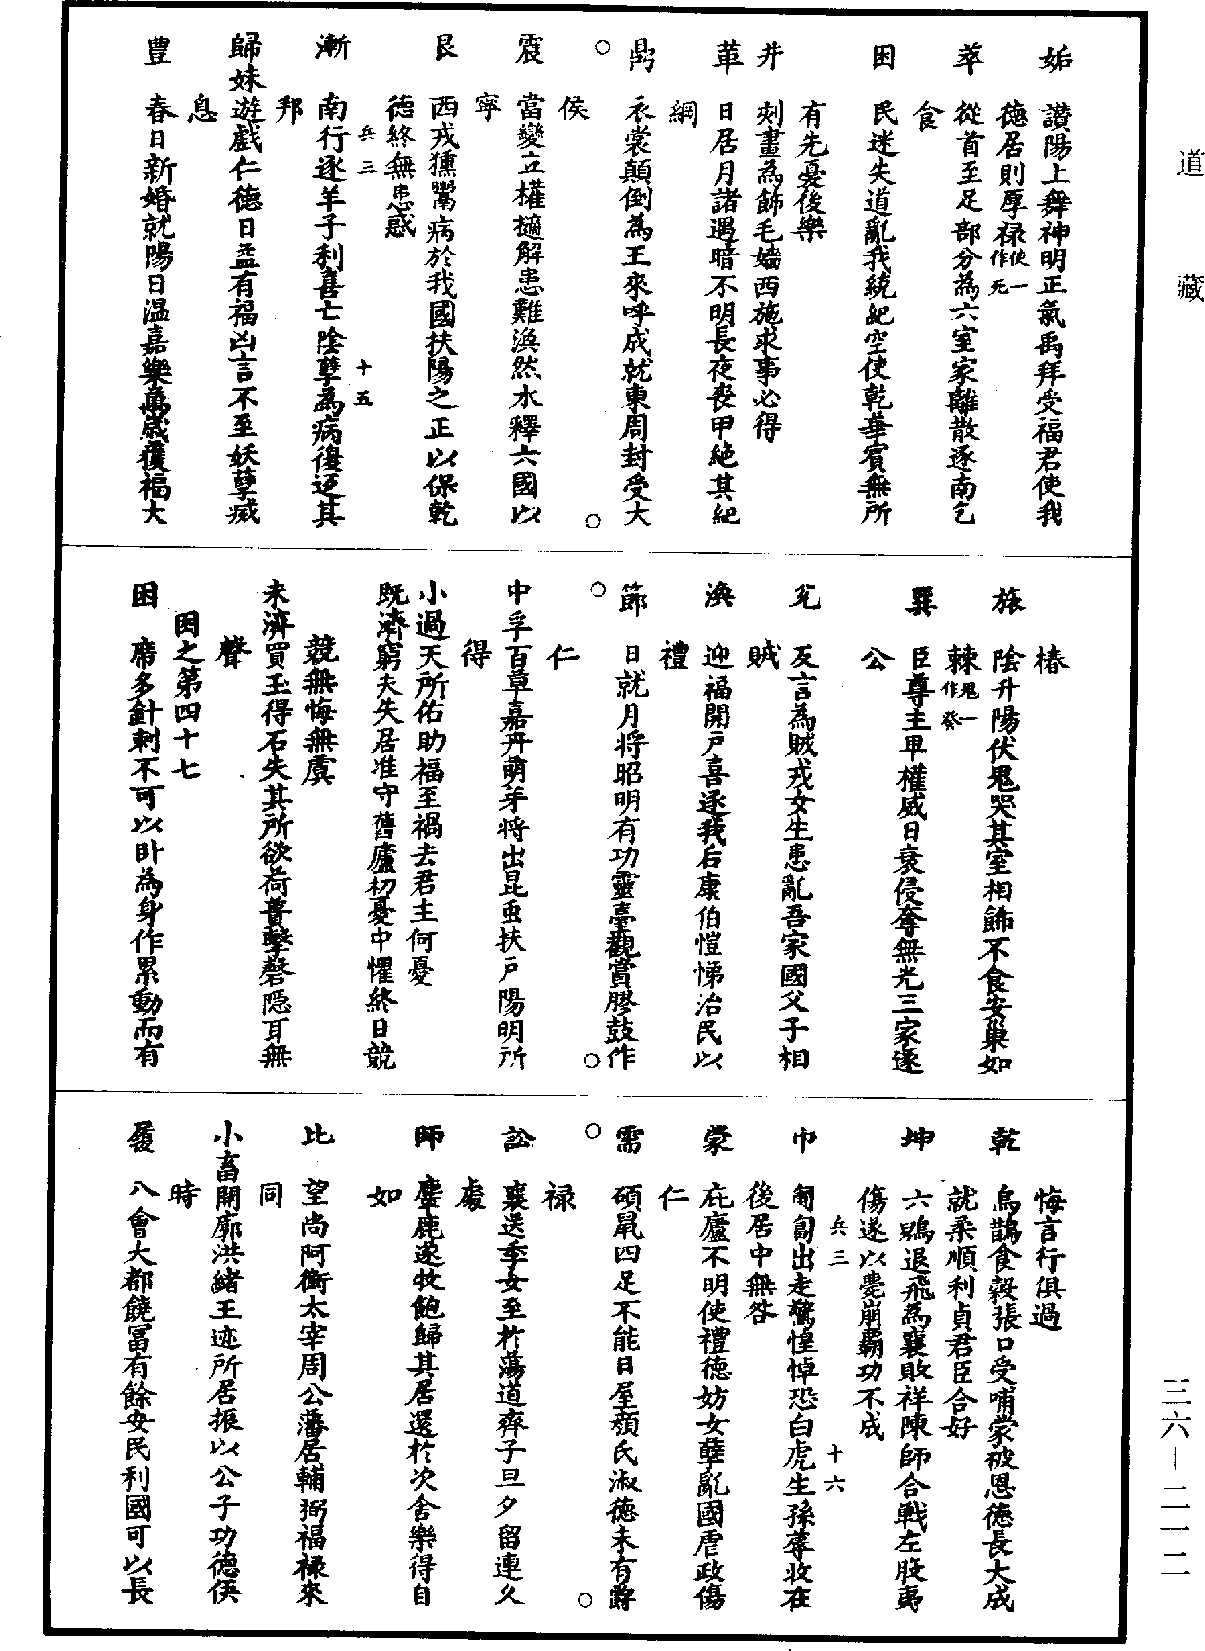 道藏
姤　讚陽上舞神明正氣禹拜受福君使我
德居則厚祿使一作死
萃　從首至足部分為六室家離散逐南乞
食
困　民迷失道亂我統紀空使乾華賓無所
有先憂後樂
井　刻畫為飾毛嬙西施求事必得
革　日居月諸遇暗不明長夜喪甲絕其紀
綱
鼎　衣裳顛倒為王來呼成就東周封受大
侯
震　當變立權擿解患難渙然水釋六國以
寧
艮　西戎獯鬻病於我國扶陽之正以保乾
德終無患惑
兵三　十五
漸　南行逐羊子利喜亡陰孽為病復迓其
邦
歸妹遊戲仁德日益有福凶言不至妖孽威
息
豐　春日新婚就陽日温嘉樂萬歲獲福大
椿
旅　陰升陽伏鬼哭其室相飾不食安巢如
棘鬼一作癸
巽　臣尊主卑權威日衰侵奪無光三家逐
公
兌　反言為賊戎女生患亂吾家國父子相
賊
渙　迎福開戶喜逐我后康伯愷悌治民以
禮
節　日就月將昭明有功靈臺觀賞膠鼓作
仁
中孚百草嘉卉萌芽將出昆虫扶戶陽明所
得
小過天所佑助福至禍去君主何憂
既濟窮夫失居准守舊廬初憂中懼終日兢
兢無悔無虞
未濟買玉得石失其所欲荷蕢擊磬隱耳無
聲
困之第四十七
困　席多針刺不可以卧為身作累動而有
悔言行俱過
乾　烏鵲食穀張口受哺蒙被恩德長大成
就柔順利貞君臣合好
坤　六鷁退飛為襄敗祥陳師合戰左股夷
傷遂以薨崩霸功不成
兵三　十六
巾　匍匐出走驚惶悼恐白虎生孫蓐收在
後居中無咎
蒙　庇廬不明使禮德妨女孽亂國虐政傷
仁
需　碩鼠四足不能日屋顏氏淑德未有爵
祿
訟　襄送季女至於蕩道齊子旦夕留連久
處
師　麞鹿逐牧飽歸其居還於次舍樂得自
如
比　望尚阿衡太宰周公藩居輔弼福祿來
同
小畜開廓洪緒王迹所居振以公子功德俟
時
履　八會大都饒冨有餘安民利國可以長
三六—二一二